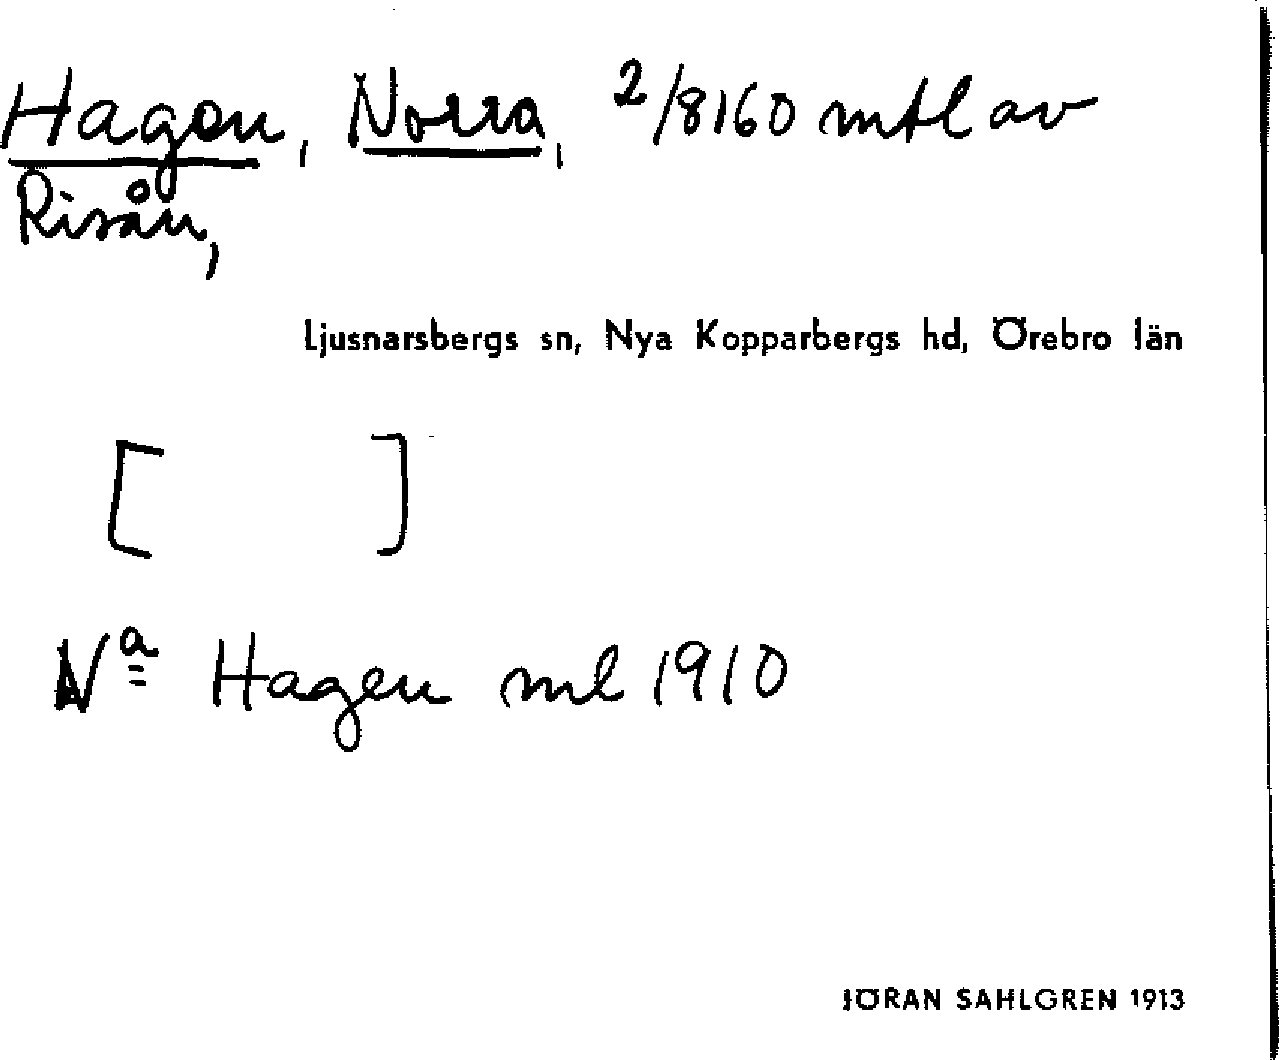 Hagen, Norra, 2/8160 mtl av
Risån,
Ljusnarsbergs sn, Nya Kopparbergs hd, Örebro län
[ ]
Na Hagen ml 1910
JÖRAN SAHLGREN 1913